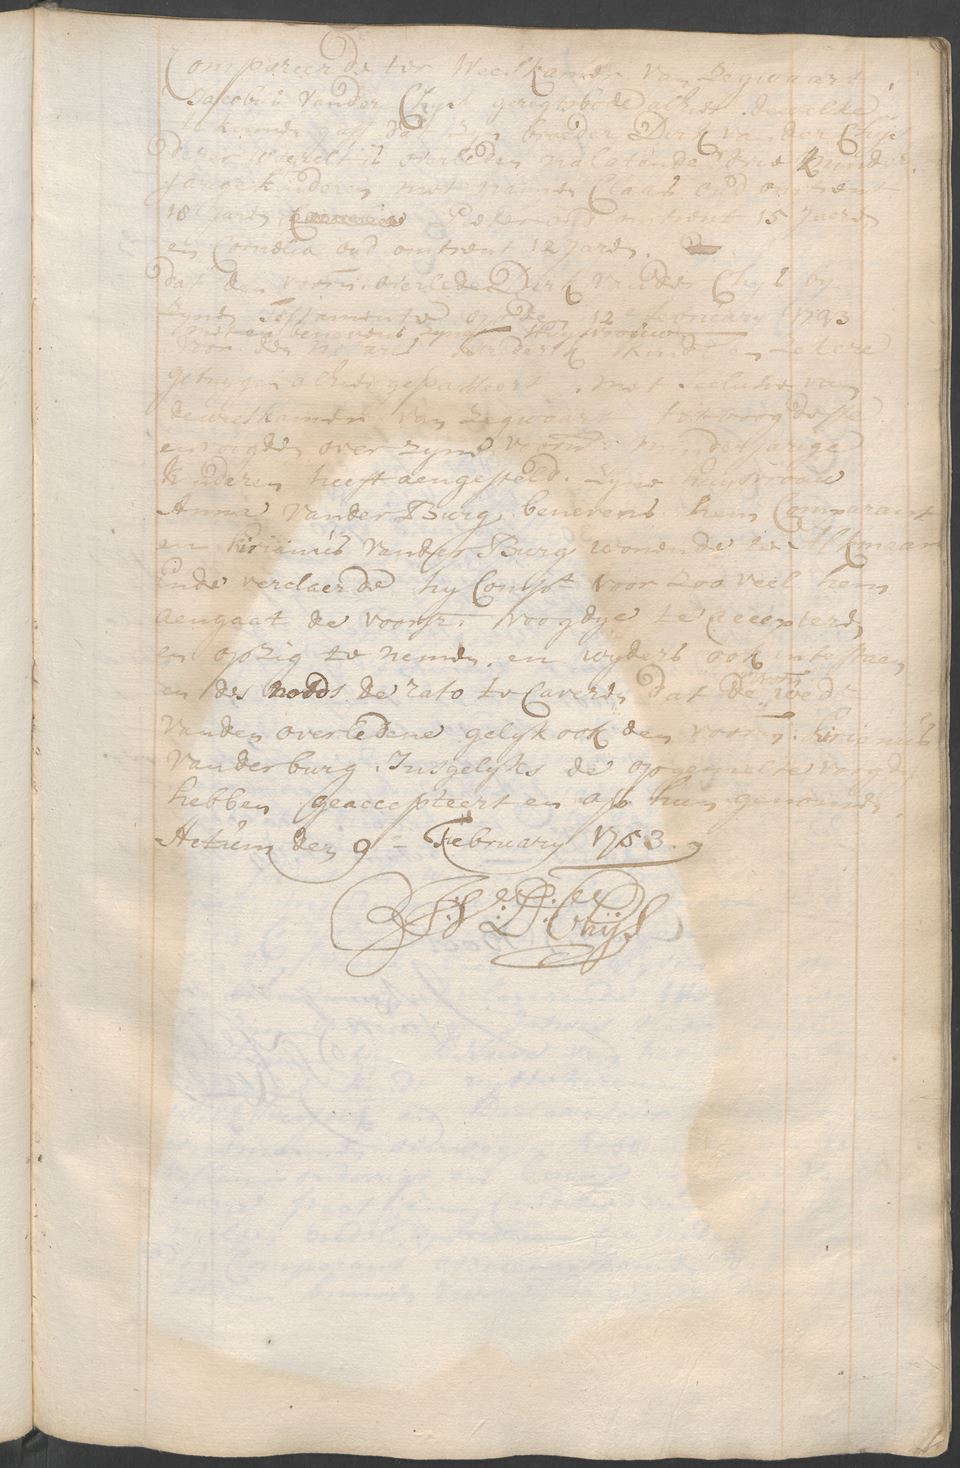 Compareerde ter Weeskamer van Zegwaart
Jacobus vander Chijs geregtsbode alhier dewelke
te kennen gaff dat zyn broeder Dirk van der Chys
dezer waerelt is overleden nalatende drie minder
jarige kinderen met namen Claas oud omtrent
18 Jaren Pieter oud omtrent 15 Jaren
en Cornelia oud omtrent 12 Jaren.
dat den voorn. overleden Dirk vander Chijs by
zyne Testamente op den 12e february
met en benevens zyne huysvrouw
voor den Notaris en zekere
getuygen alhier gepasseert, met seclusie van
de weeskamer van Zegwaart tot voogdesse
en voogden over zyne voorn: minderjarige
kinderen heeft aengesteld. Zyne huysvrouw
Anna vander Burg, benevens hem Comparant
en Kirianus vander Burg wonende te Alkmaar
ende verclaerde hy Compt. voor zoo veel hem
aengaat de voorsz. voogdye te accepteren
en op zig te nemen, en wyders ook in te staen
en des noods de rato te Caveren dat de voorn. wede.
vanden overledene gelyk ook den voorn. Kirianus
vanderburg Insgelyks de opgemelte voogdy
hebben geaccepteert en op hun genomen
Actum den 9e February 1753.
J: V: D: Chijs